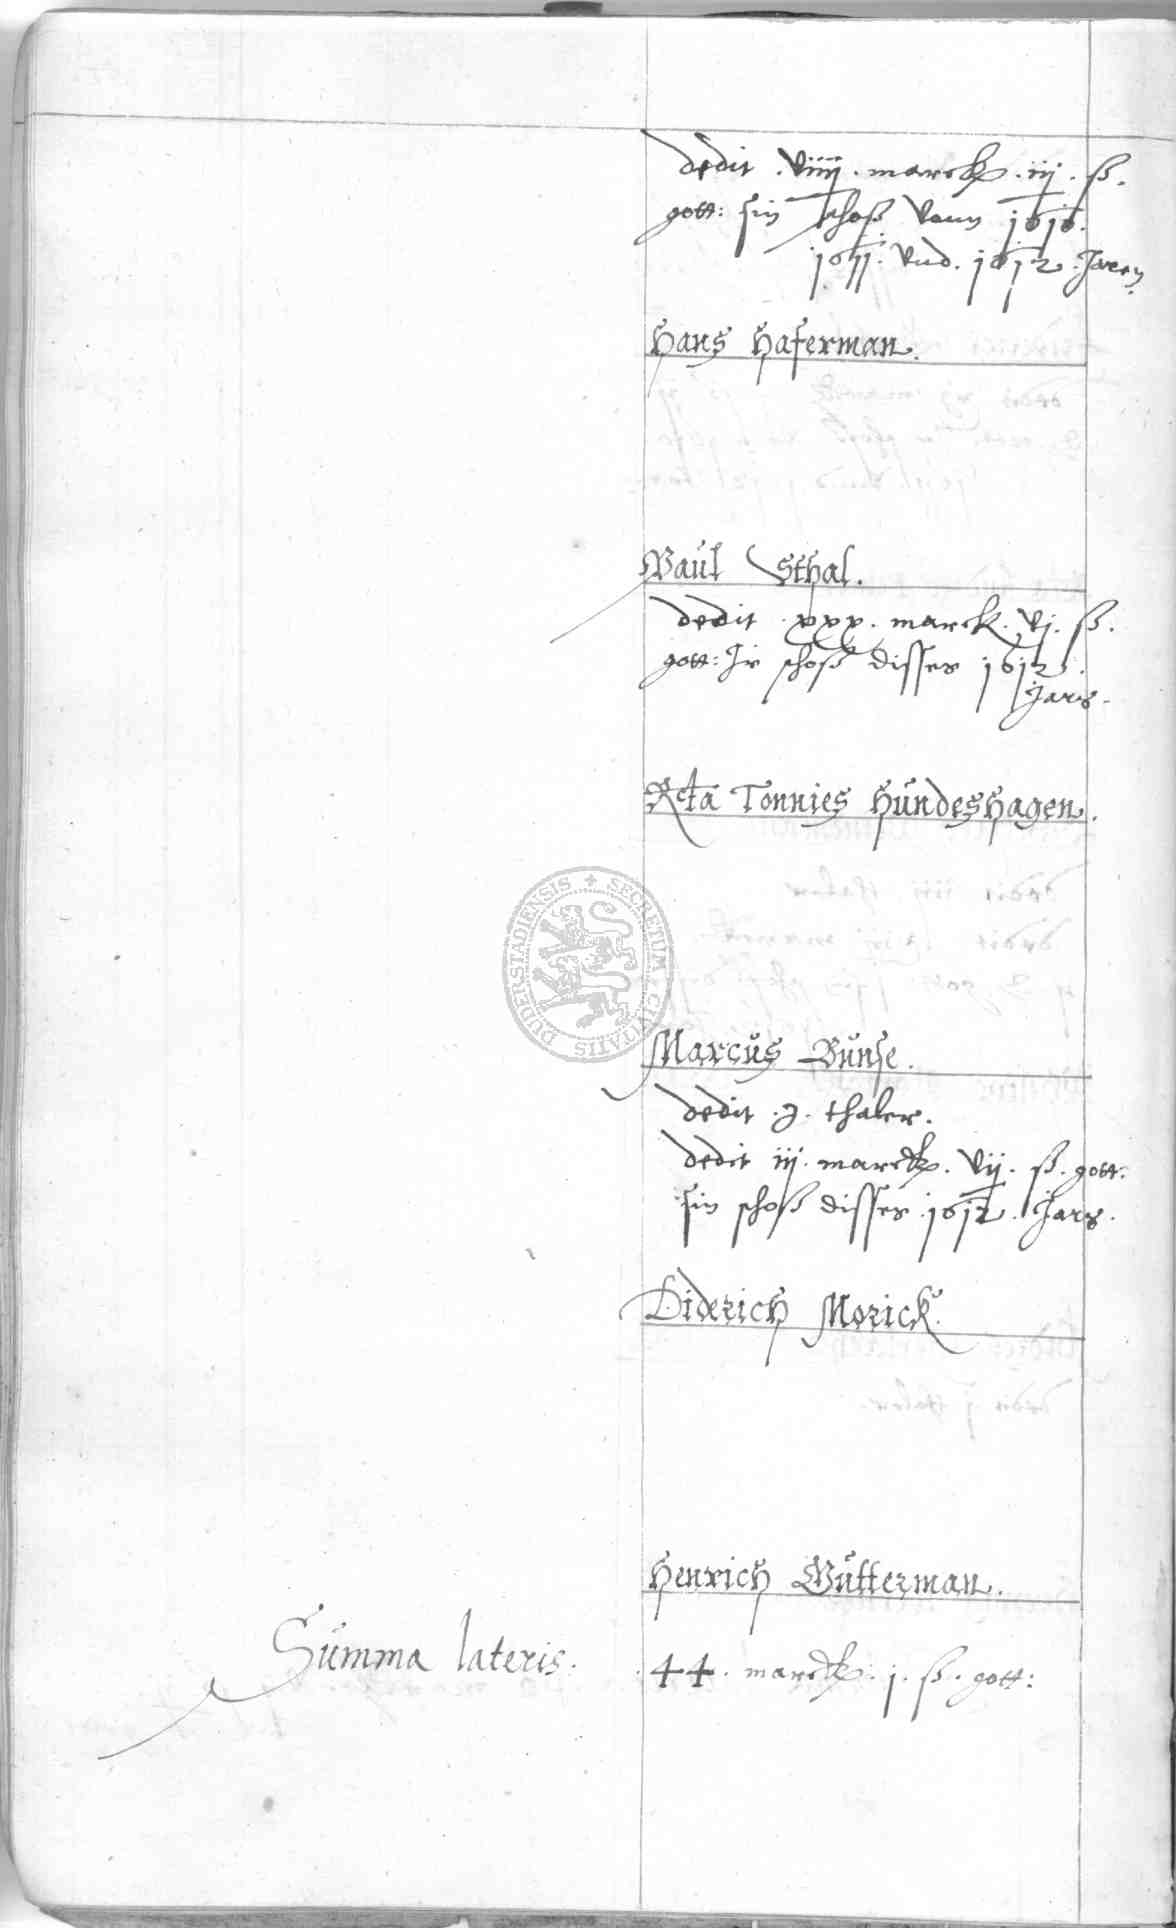 dedit . viiij . marck . iij . ß .
gott: sin schoß vonn 1610.
1611. vnd . 1612 . Jaren
Hans Haferman .
Paul Sthal .
dedit . xxx . marck . vj . ß .
gott: Jr schoß disses 1612 .
Jars .
Rcta Tonnies Hundeshagen .
DUDERSTADIENSIS + SECRETUM CIVITATIS
Marcus Bunse .
dedit . j . thaler .
dedit iij . marck . vij . ß . gott:
sin schoß disses . 1612 . Jars .
Diderich Morick .
Henrich Wutterman .
Summa lateris . . 44 . marck . j . ß . gott: